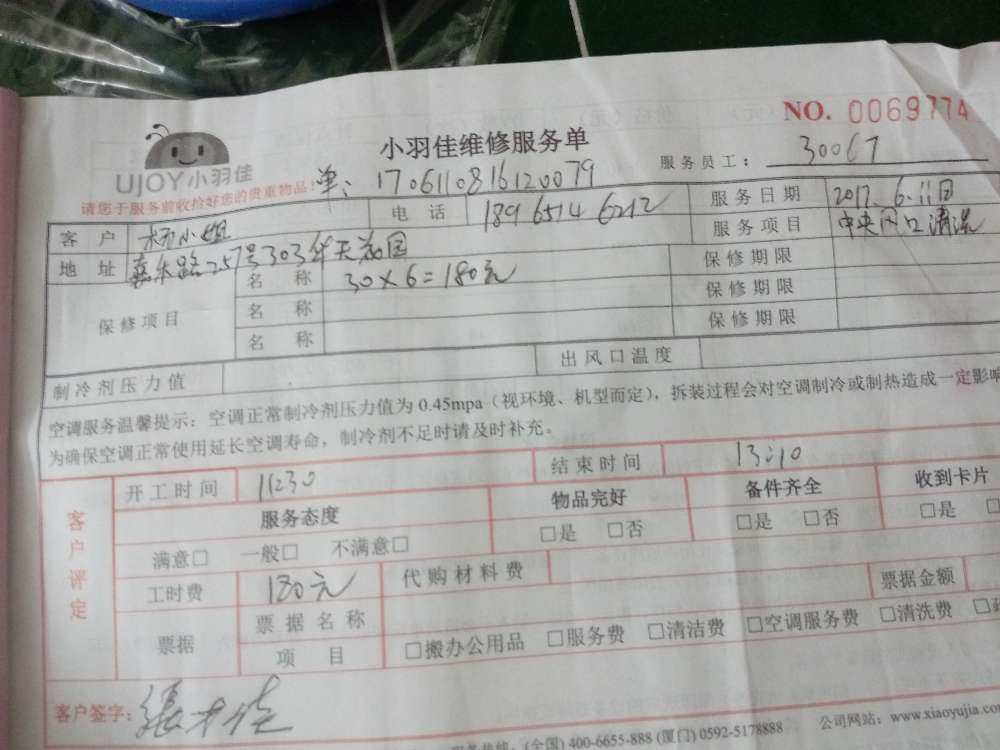 NO. 0069774
小羽佳维修服务单
UJOY小羽佳
服务员工： 30067
请您于服务前收拾好您的贵重物品！
单: 170611081612 0079
客 户 杨小姐 电 话 18965146212 服务日期 2017.6.11日
地 址 嘉禾路257号303华天花园 服务项目 中央风口清洗
保修项目 名 称 30×6=180元 保修期限
名 称 保修期限
名 称 保修期限
制冷剂压力值 出风口温度
空调服务温馨提示：空调正常制冷剂压力值为 0.45mpa（视环境、机型而定），拆装过程会对空调制冷或制热造成一定影响
为确保空调正常使用延长空调寿命，制冷剂不足时请及时补充。
客户评定
开工时间 11:30 结束时间 13:10
服务态度 物品完好 备件齐全 收到卡片
满意□ 一般□ 不满意□ □是 □否 □是 □否 □是
工时费 180元 代购材料费
票据 票据名称 票据金额
项 目 □搬办公用品 □服务费 □清洁费 □空调服务费 □清洗费
客户签字：
服务热线：(全国) 400-6655-888 (厦门) 0592-5178888 公司网站：www.xiaoyujia.com